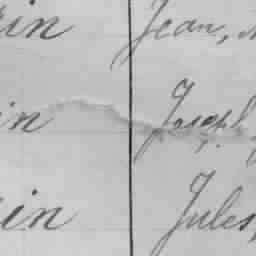 in Jean,
in Joseph
in Jules,